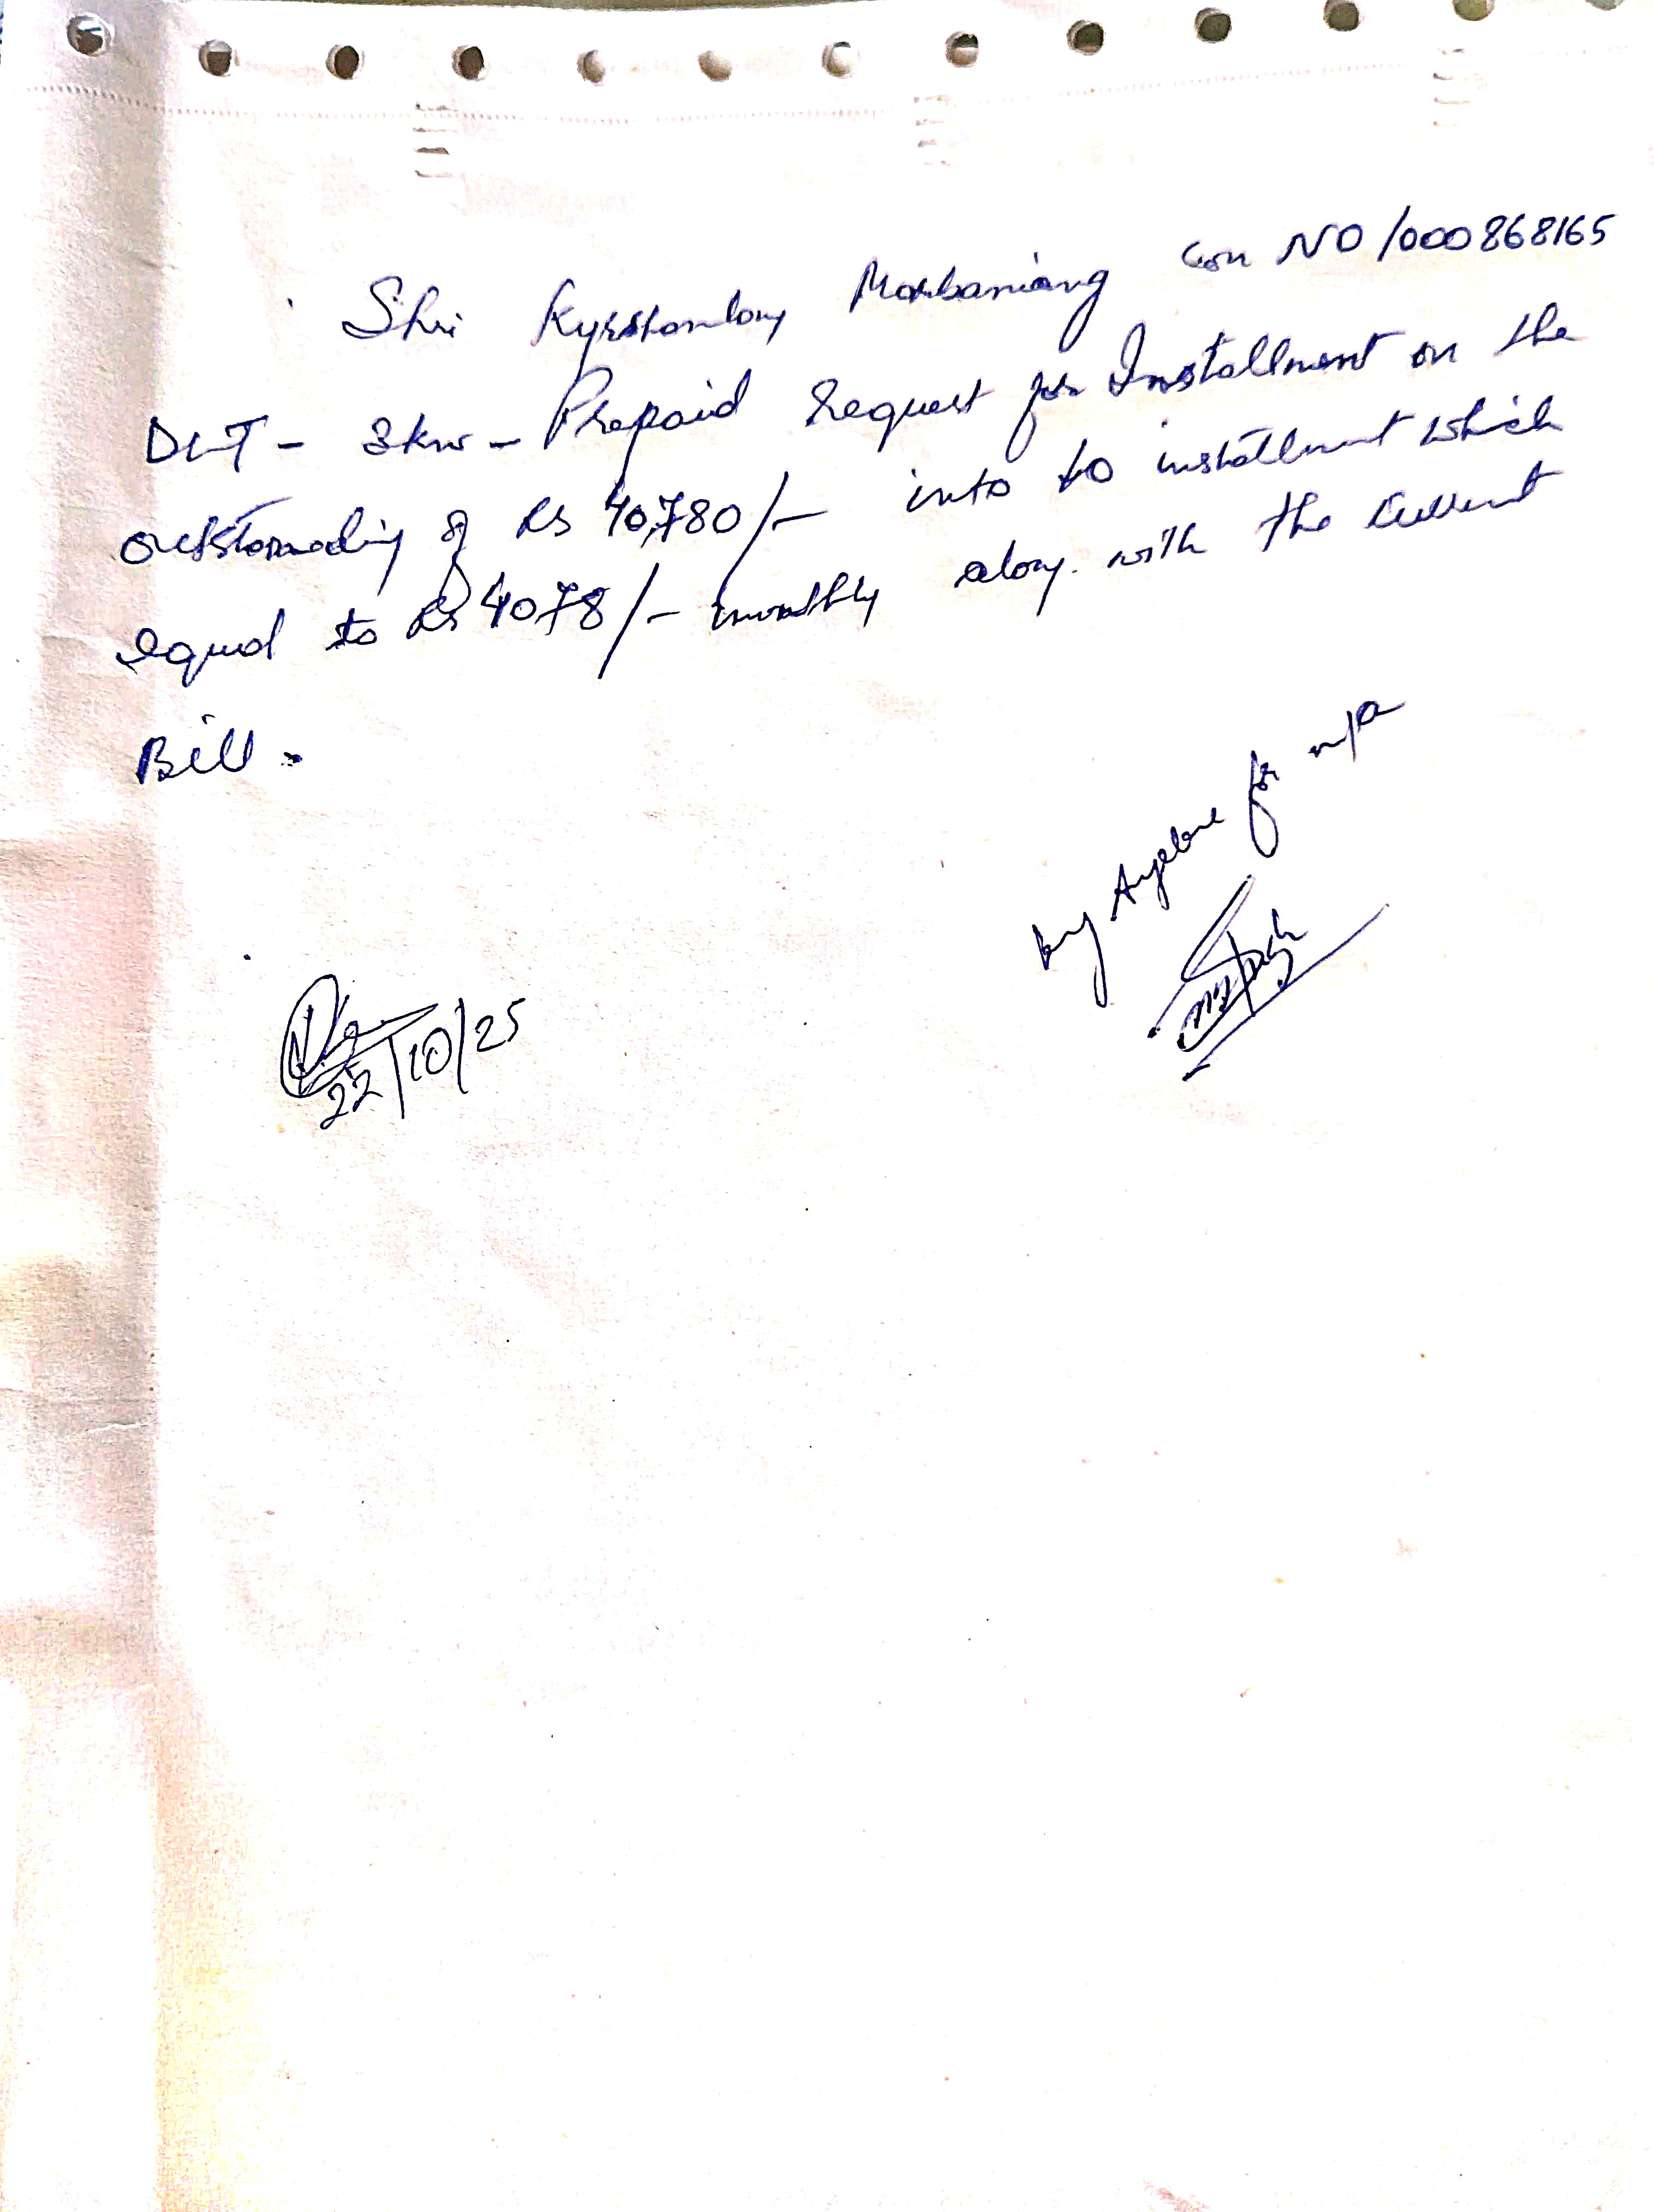 Shri Kyrshanlang Marbaniang Con NO 1000868165
DLT - 3kw - Prepaid request for Installment on the
outstanding of Rs 40,780/- into 10 installment which
equal to Rs 4078/- monthly along with the current
Bill.
for n/a
22/10/25